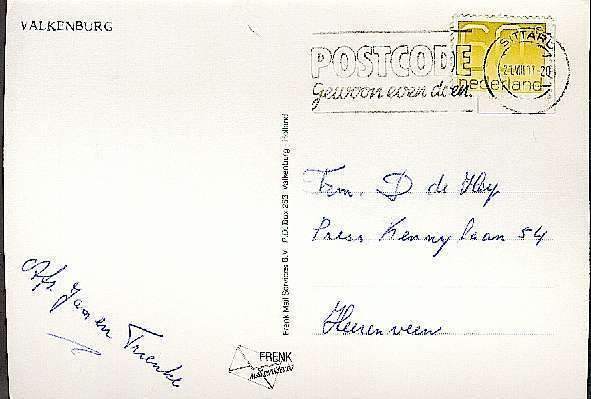 VALKENBURG
POSTCODE
gewoon even doen.
SITTARD
nederland
Frenk Mail Services B.V. P.O. Box 253 Valkenburg Holland
Fam. D de Heij
Pres. Kennylaan 54
Heerenveen
Afz. Jan en Trienke
FRENK